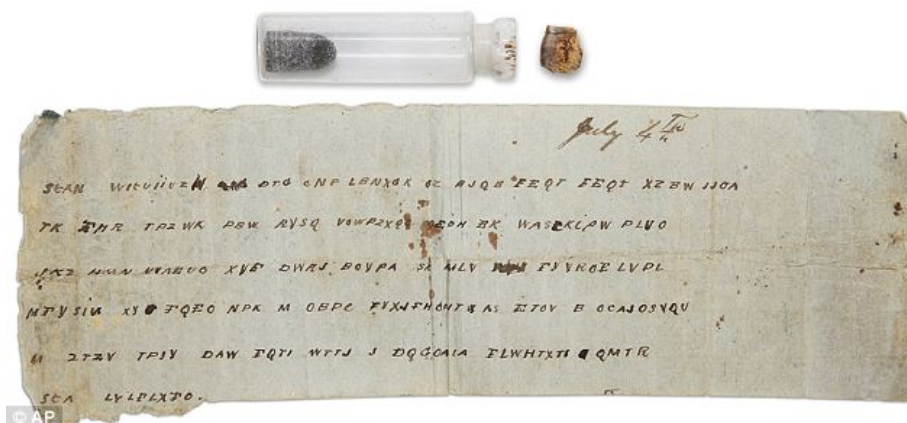 July 4th
SEAN DTG CNP LBNXGK OZ BJQB FEQT FEQT XZBW JJOA
TK FHR TPZWK PBW RYSQ VOWPZXQ OEPH EK WASFKLPW PLVO
JKZ HMN XVE DWRJ BOYPA SK MLV FYYROE LVPL
MFYSIN XY FQEO NPK M OBPC FYXJFHOHT AS ETOV B OCAJOSVQU
M ZTZV TPJY DAW FQTI WTTJ J DQGOAIA FLWHTXTI QMTR
SEA LVLFLXFO.
© AP